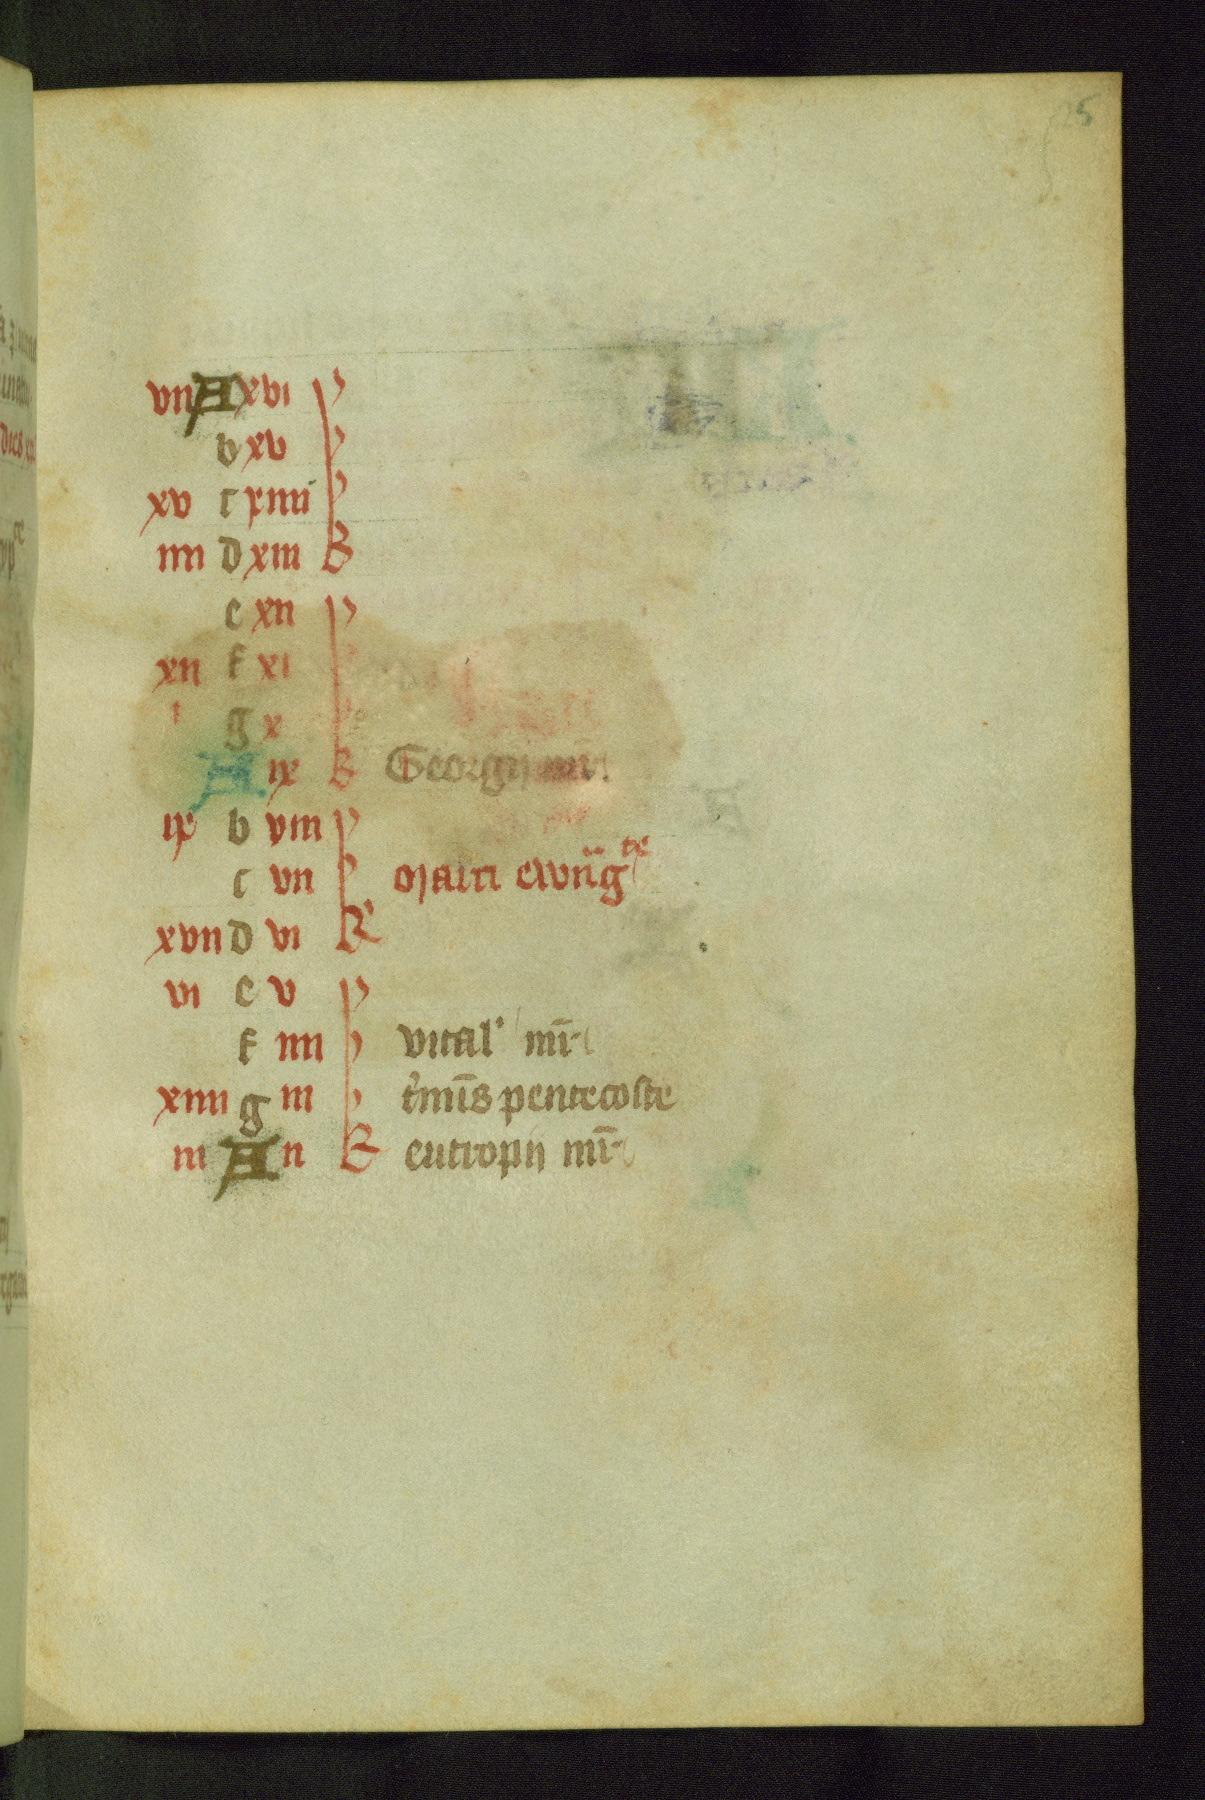 25
vii A xvi p
b xv p
xv c xiiii p
iiii d xiii B
e xii p
xii f xi p
i g x p
A ix B Georgii mr̄
ix b viii p
c vii p Marci ewāg te
xvii d vi R
vi e v p
f iiii p vital' mr̄
xiiii g iii p t'mīs pentecoste
iii A ii B eutropii mr̄